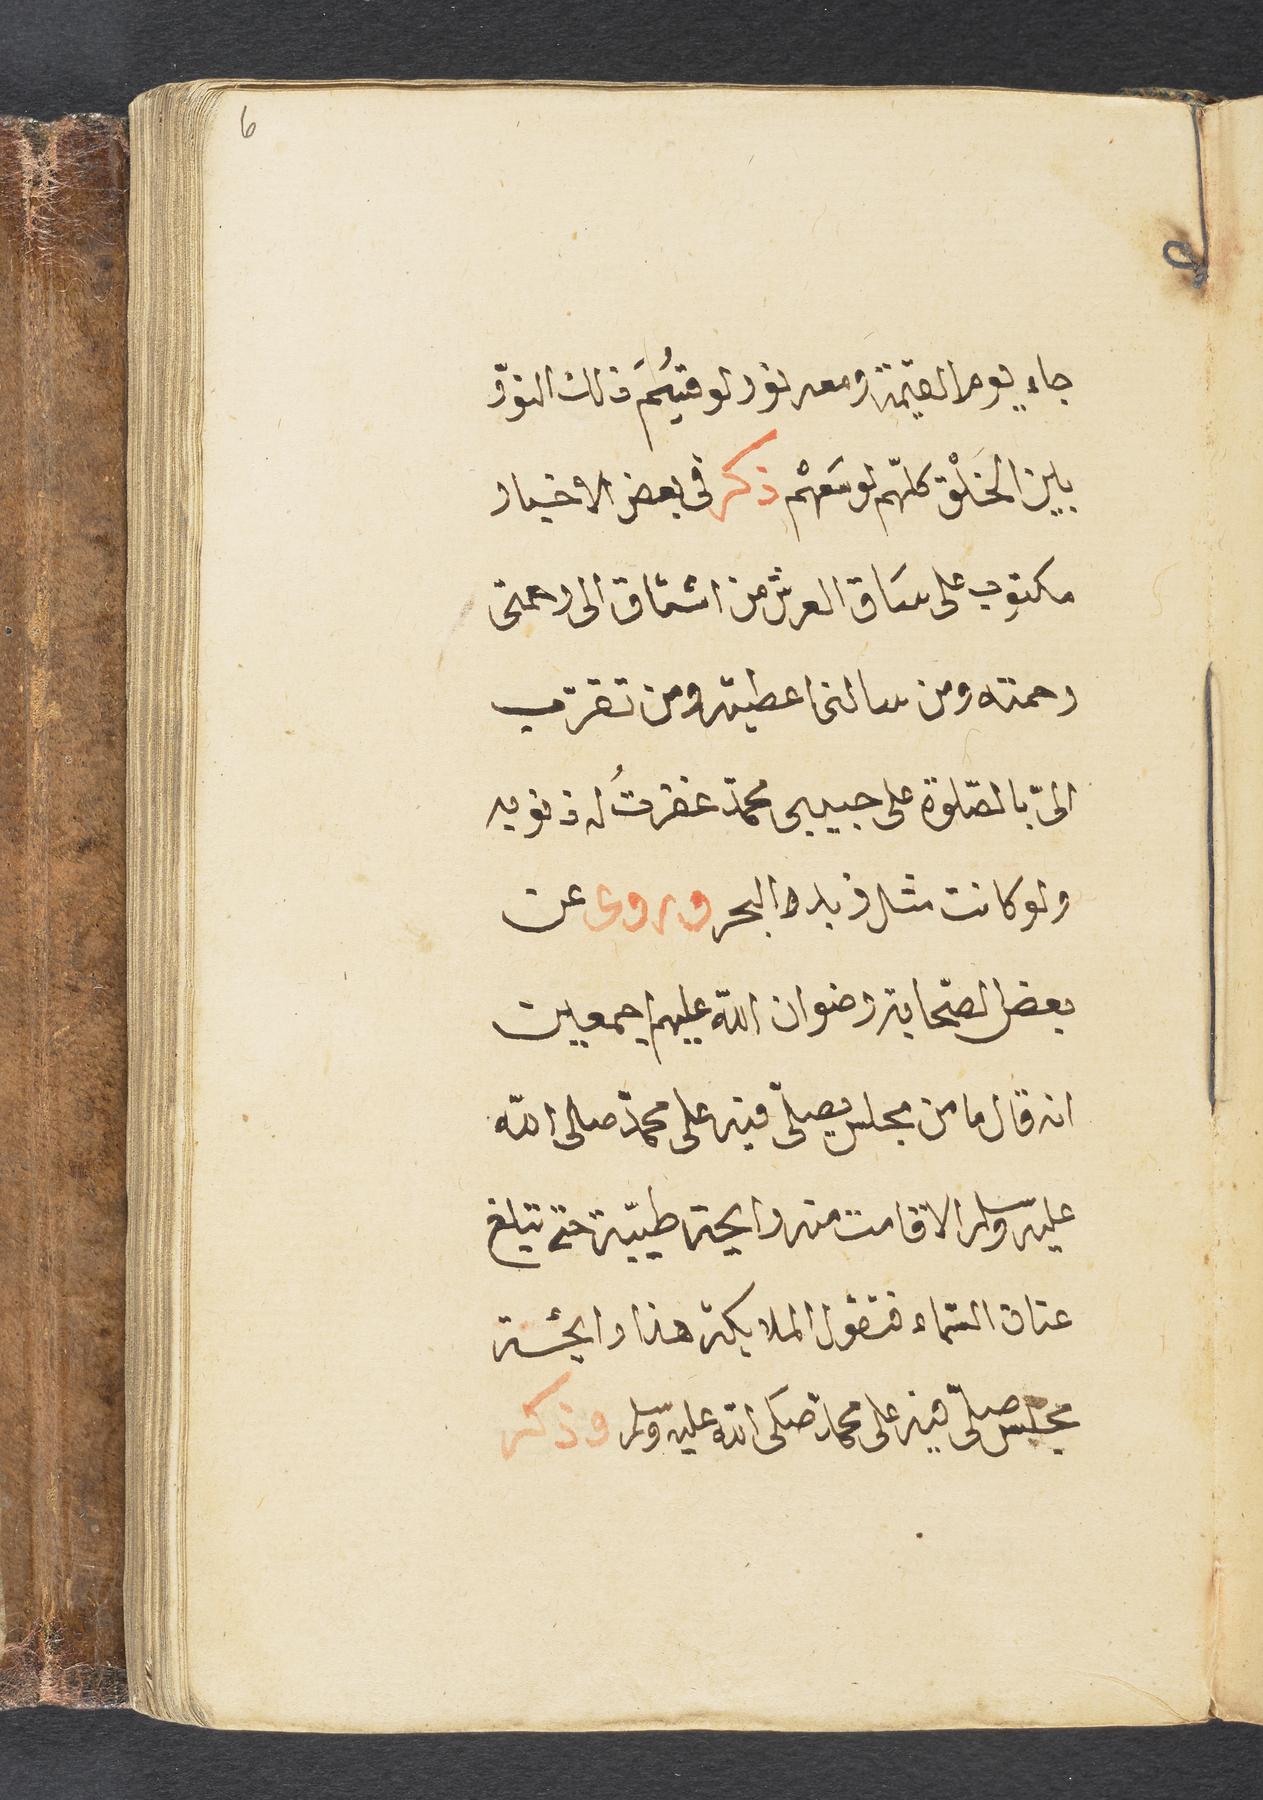 6
جاء يوم القيمة ومعه نور لو قسم ذلك النور
بين الخلق كلهم لوسعهم ذكر فى بعض الاخبار
مكتوب على ساق العرش من اشتاق الى رحمتى
رحمته ومن سالنى اعطيته ومن تقرب
الىّ بالصّلوة على حبيبى محمد غفرتُ له ذنوبه
ولو كانت مثل زبد البحر وروى عن
بعض الصّحابة رضوان اللّه عليهم اجمعين
انه قال ما من مجلس يصلّى فيه على محمّد صلى اللّه
عليه وسلم الا قامت منه رايحة طيّبة حتى تبلغ
عنان السّماء فتقول الملايكة هذا رايحة
مجلس صلّى فيه على محمد صلى اللّه عليه وسلم وذكر